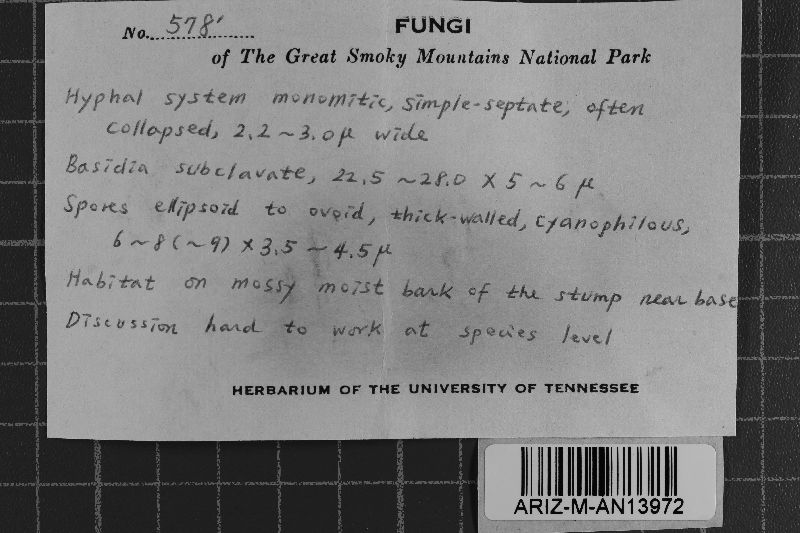 No. 578'
FUNGI
of The Great Smoky Mountains National Park
Hyphal system monomitic, simple-septate, often
collapsed, 2.2 ~ 3.0 μ wide
Basidia subclavate, 22.5 ~ 28.0 × 5 ~ 6 μ
Spores ellipsoid to ovoid, thick-walled, cyanophilous,
6 ~ 8 (~ 9) × 3.5 ~ 4.5 μ
Habitat on mossy moist bark of the stump near base
Discussion hard to work at species level
HERBARIUM OF THE UNIVERSITY OF TENNESSEE
ARIZ-M-AN13972